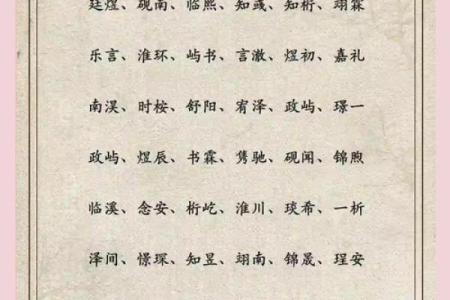 廷煜、砚南、临熙、知彧、知桁、翊霖
乐言、淮环、屿书、言澈、煜初、嘉礼
南淏、时桉、舒阳、宥泽、政屿、璟一
政屿、煜辰、书霖、隽驰、砚闻、锦煦
临溪、念安、桁屹、淮川、琰希、一析
泽间、憬琛、知昱、翊南、锦晟、珵安